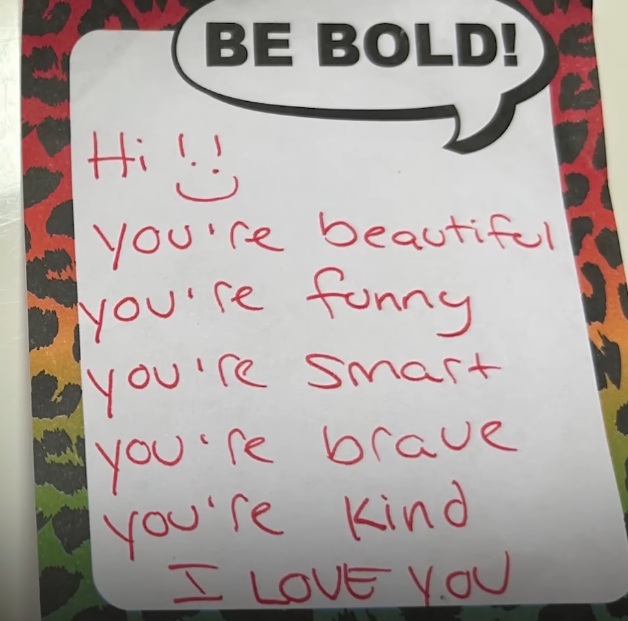 BE BOLD!
Hi !!
you're beautiful
you're funny
you're smart
you're brave
you're kind
I LOVE YOU